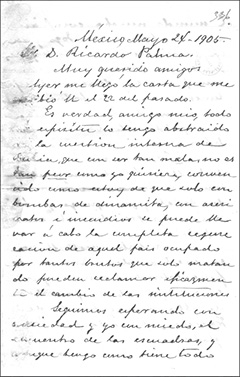 México, Mayo 24-1905-
Sr. D. Ricardo Palma.
Muy querido amigo:
Ayer me llegó la carta que me
escribió U el 22 del pasado.
Es verdad, amigo mio, todo
espíritu lo tengo abstraido
la cuestion interna de
Rusia, que con ser tan mala, no es
tan peor como yo quisiera, conven
cido como estoy de que solo con
bombas de dinamita, con asesi
natos e incendios se puede lle
var á cabo la completa regene
racion de aquel pais ocupado
por tantos brutos que solo matan
do pueden reclamar eficazmen
te el cambio de las instituciones
Seguimos esperando con
ansiedad y yo con miedo, el
encuentro de las escuadras, y
que tengo como tiene todo